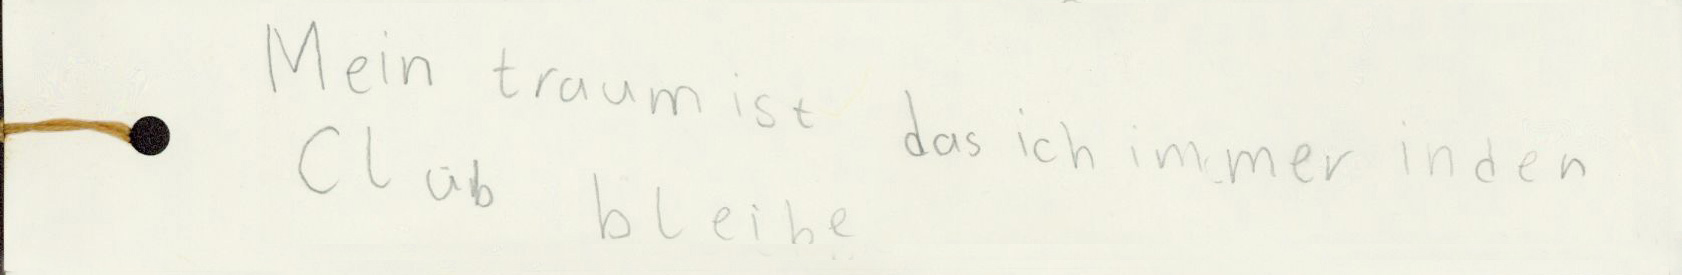 Mein traum ist das ich immer inden
Club bleibe